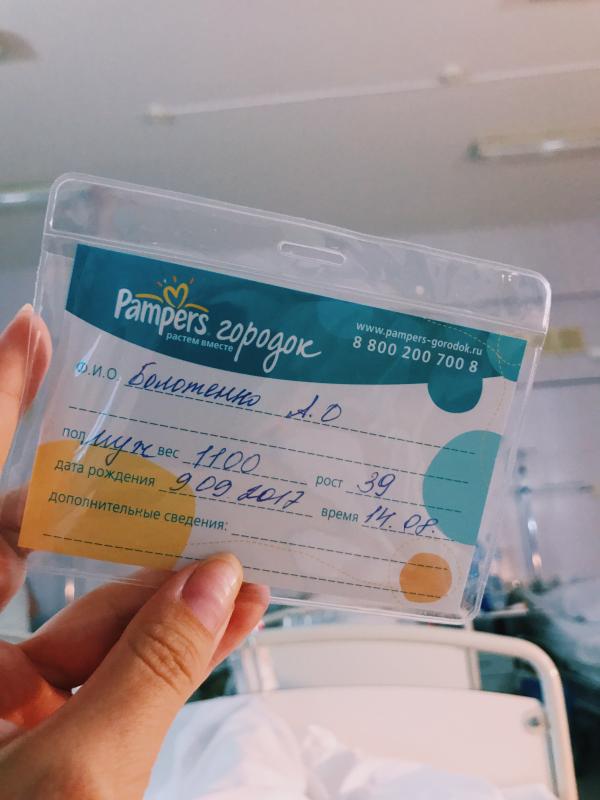 Pampers городок
растем вместе
www.pampers-gorodok.ru
8 800 200 700 8
Ф.И.О. Болотенко А.О
пол муж вес 1100 рост 39
дата рождения 9.09 2017 время 14.08.
дополнительные сведения: